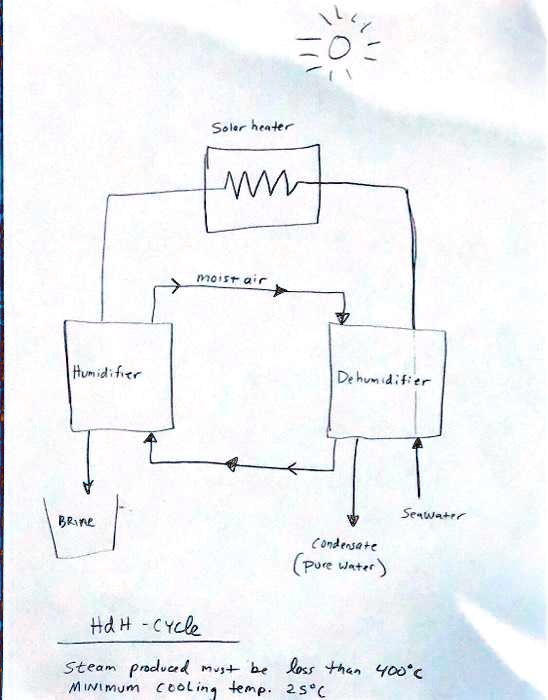 Solar heater
moist air
Humidifier
Dehumidifier
BRINE
Seawater
Condensate
(pure water)
HdH - CYCLE
Steam produced must be less than 400°C
MINIMUM COOLING temp. 25°C